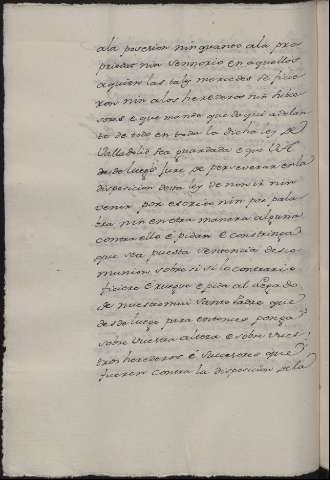 ala posesion nin quando ala pro
piedad nin sennorio en aquellos
a quien las tales mercedes se ficie
ron nin a los herederos nin subce
sores e que mando que de qui adelan
te de todo en todo la dicha ley de
Valladolid sea guardada e que
desde luego jure de perseverar en la
disposicion desta ley de non ir nin
venir por escrito nin por pala
bra nin en otra manera alguna
contra ello e pidan e constringa
que sea puesta sentencia desco
munion sobre si si lo contrario
ficiere e ruegue e pida al legado
de nuestro mui Santo Padre que
desde luego para entonces ponga
sobre vuestra alteza e sobre vues
tros herederos e successores que
fueren contra la disposicion de la